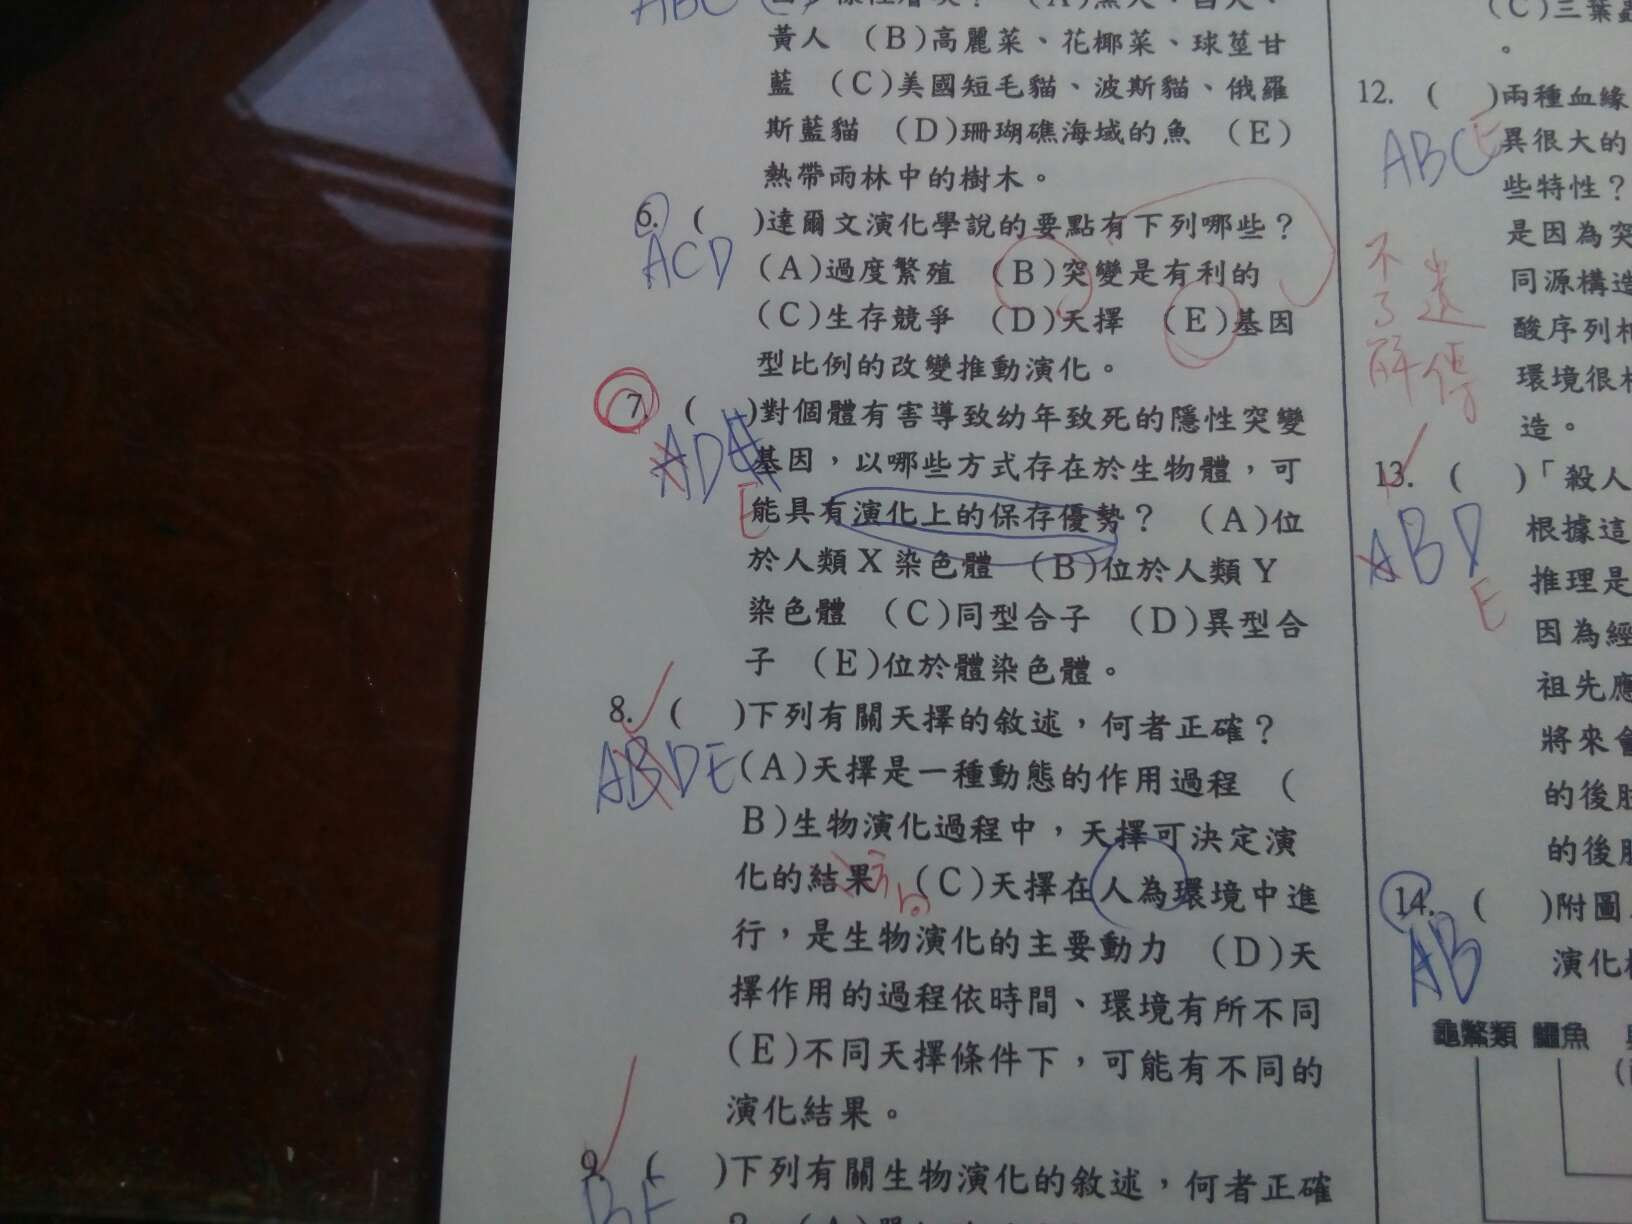 黃人 (B)高麗菜、花椰菜、球莖甘
藍 (C)美國短毛貓、波斯貓、俄羅
斯藍貓 (D)珊瑚礁海域的魚 (E)
熱帶雨林中的樹木。
6. ( )達爾文演化學說的要點有下列哪些？
ACD
(A)過度繁殖 (B)突變是有利的
(C)生存競爭 (D)天擇 (E)基因
型比例的改變推動演化。
7. ( )對個體有害導致幼年致死的隱性突變
AD
E
基因，以哪些方式存在於生物體，可
能具有演化上的保存優勢？ (A)位
於人類X染色體 (B)位於人類Y
染色體 (C)同型合子 (D)異型合
子 (E)位於體染色體。
8. ( )下列有關天擇的敘述，何者正確？
ABDE
(A)天擇是一種動態的作用過程 (
B)生物演化過程中，天擇可決定演
化的結果 (C)天擇在人為環境中進
行，是生物演化的主要動力 (D)天
擇作用的過程依時間、環境有所不同
(E)不同天擇條件下，可能有不同的
演化結果。
9. ( )下列有關生物演化的敘述，何者正確
BE
(C)三葉蟲
。
12. ( )兩種血緣
ABCE
異很大的
些特性？
是因為突
同源構造
酸序列相
環境很相
造。
不了解
遺傳
13. ( )「殺人
ABD
E
根據這
推理是
因為經
祖先應
將來會
的後肢
的後肢
14. ( )附圖
AB
演化樹
龜鱉類 鱷魚